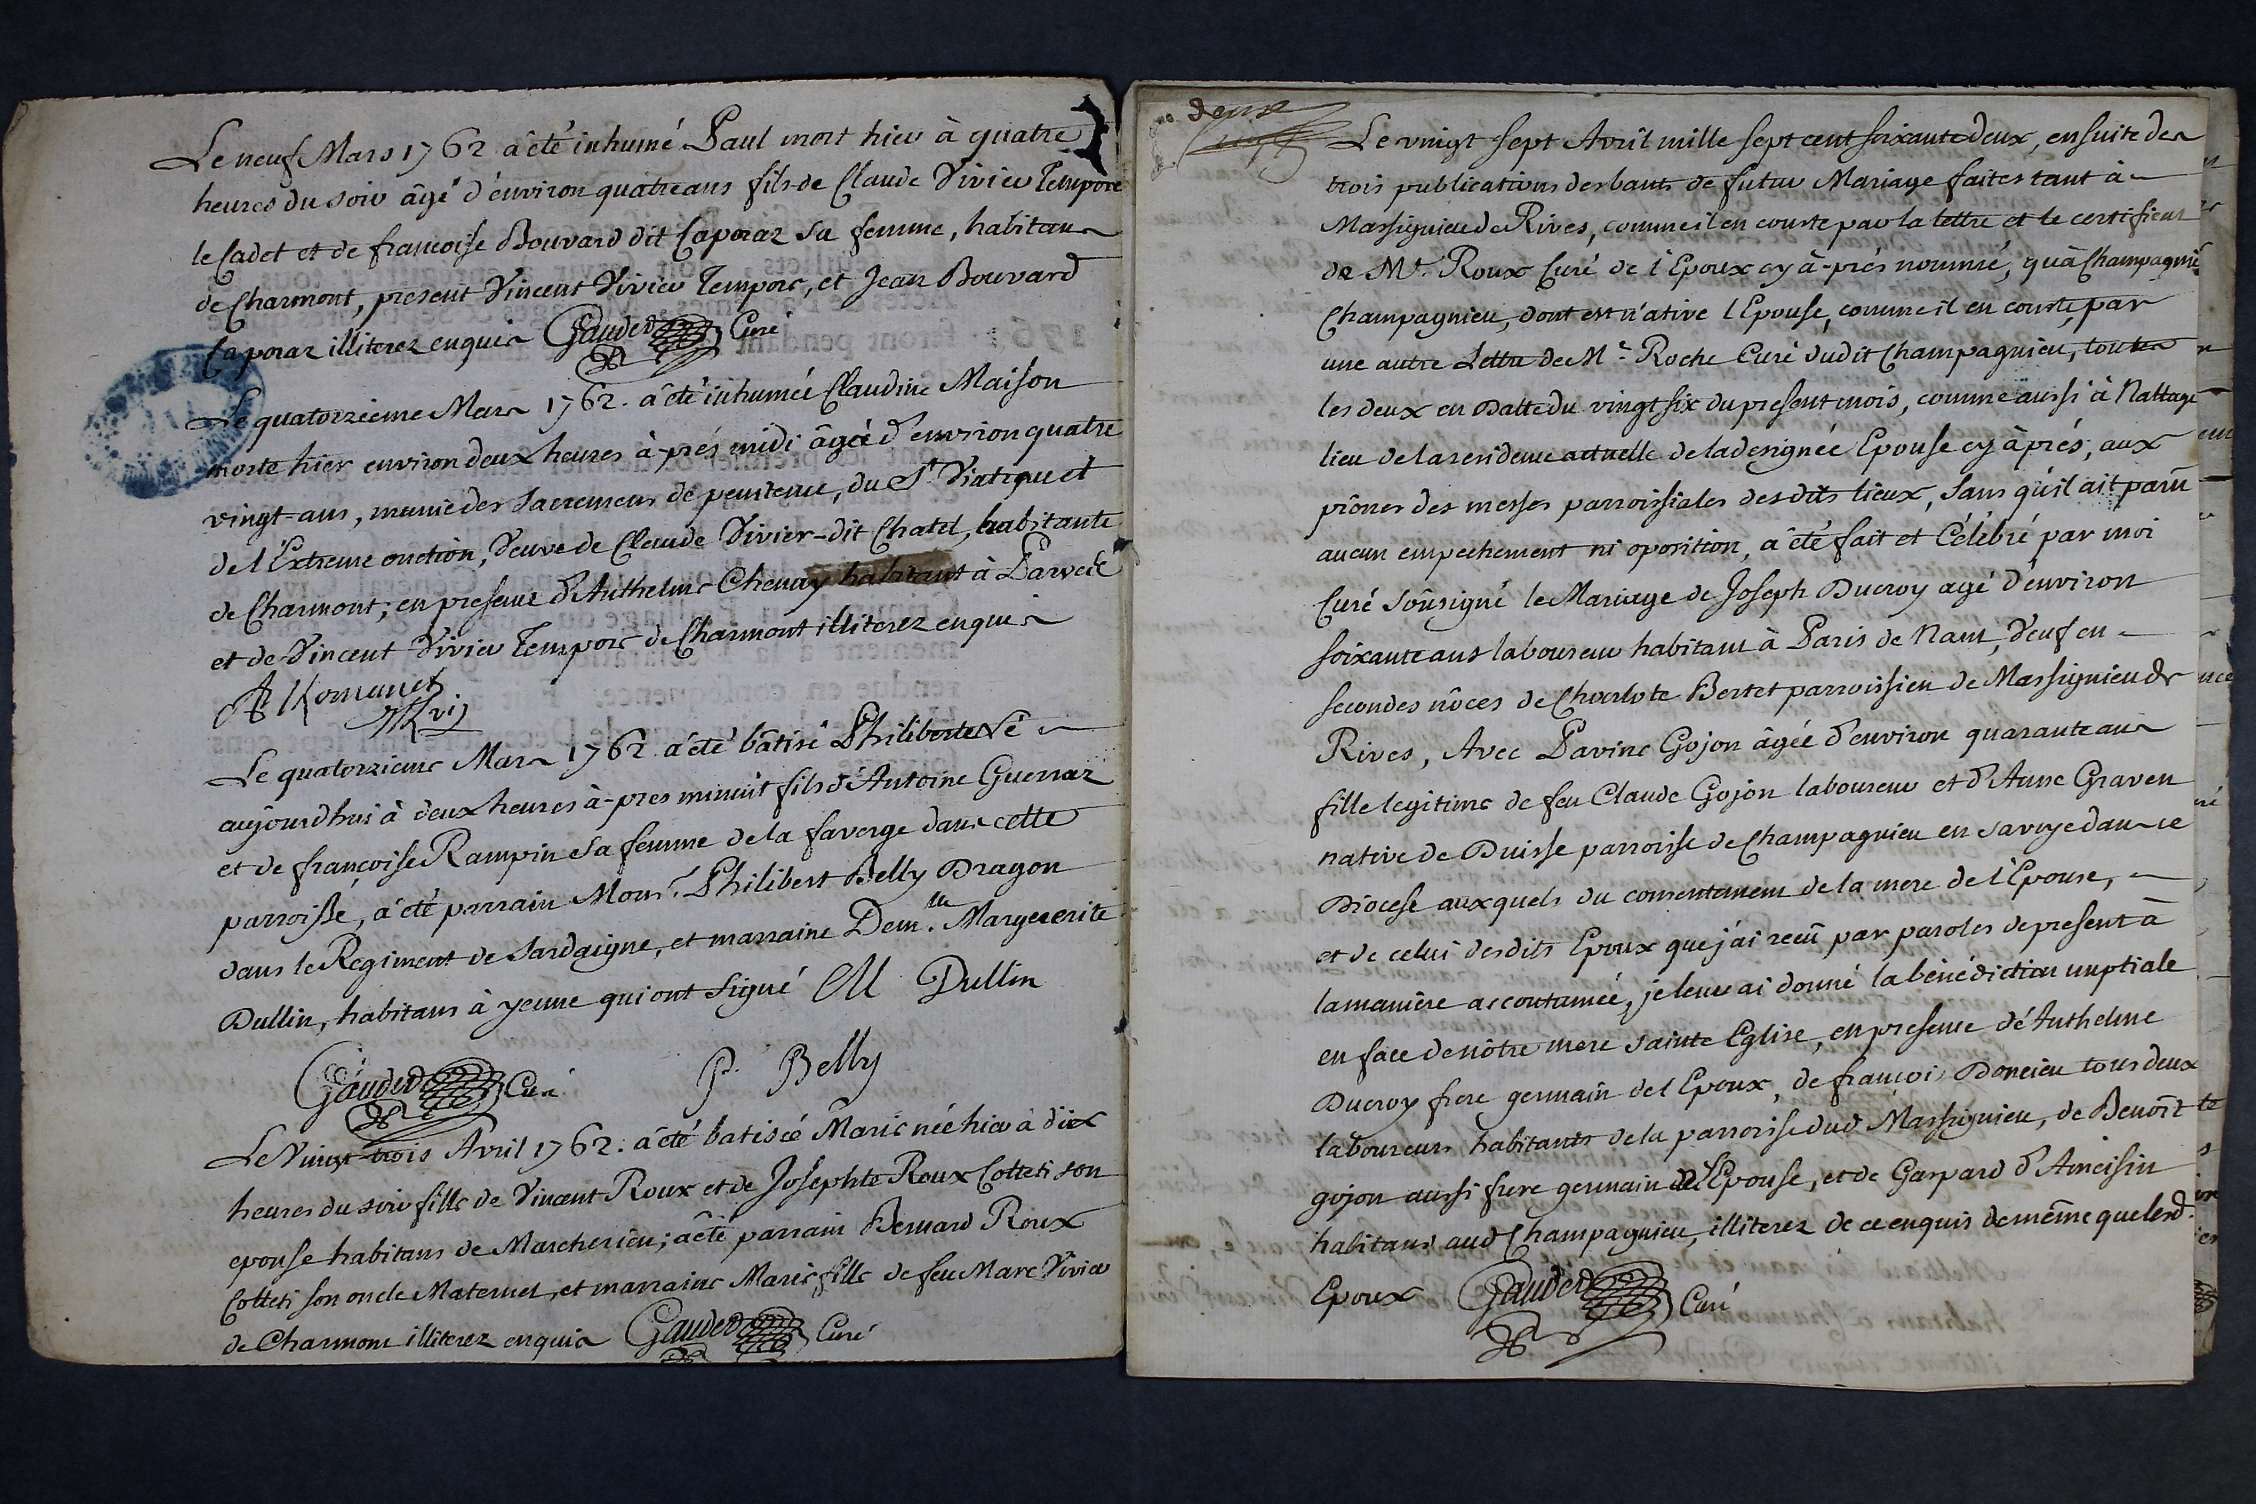 Le neuf Mars 1762 a été inhumé Paul mort hier à quatre
heures du soir âgé d'environ quatre ans fils de Claude Vivier Tempore
le Cadet et de francoise Bouvard dit Caporaz sa femme, habitans
de Charmont, present Vincent Vivier Tempore, et Jean Bouvard
Caporaz illiterez enquis Gauded Curé
Le quatorzieme Mars 1762. a été inhumée Claudine Maison
morte hier environ deux heures à-prés midi âgée d'environ quatre
vingt-ans, munie des sacremens de penitence, du St Viatique et
de l'Extreme onction, Veuve de Claude Vivier-dit Chatel, habitante
de Charmont; en presence d'Anthelme Chenay habitant à Parves
et de Vincent Vivier Tempore de Charmont illiterez enquis
Le quatorzieme Mars 1762 a été bâtisé Philiberte né
aujourdhui à deux heures à-pres minuit fils d'Antoine Guerraz
et de francoise Rampin sa femme de la faverge dans cette
parroisse, a été parrain Monsr. Philibert Belly Dragon
dans le Regiment de Sardaigne, et marraine Demlle. Marguerite
Dullin, habitans à yenne qui ont signé M Dullin
Gauded Curé P. Belly
Le Vingt-trois Avril 1762. a été batisée Marie née hier à dix
heures du soir fille de Vincent Roux et de Josephte Roux Colleti son
epouse habitans de Marcherieu; a été parrain Bernard Roux
Colleti son oncle Maternel, et marraine Marie fille de feu Marc Vivier
de Charmont illiterez enquis Gauded Curé
deuxe
Le vingt sept Avril mille sept cent soixante deux, ensuite des
trois publications des bants de futur Mariage faites tant à
Massignieu de Rives, comme il en conste par la lettre et le certificat
de Mr. Roux Curé de l'Epoux cy à-prés nommé, qu'à Champagnie
Champagnieu, dont est n'ative l'Epouse, comme il en conste par
une autre Lettre de Mr. Roche Curé dudit Champagnieu, toutes
les deux en Datte du vingt six du present mois, comme aussi à Nattage
lieu de la residence actuelle de la designée Epouse cy àprés, aux
prônes des messes parroissiales desdits lieux, sans qu'il ait parû
aucun empechement ni oposition, a été fait et Célébré par moi
Curé soûsigné le Mariage de Joseph Ducroy agé d'environ
soixante ans laboureur habitant à Paris de Nant, Veuf en
secondes nôces de Charlote Bertet parroissien de Massignieu de
Rives, Avec Pavine Gojon âgée d'environ quarante ans
fille legitime de feu Claude Gojon laboureur et d'Anne Graven
native de Duisse parroisse de Champagnieu en savoye dans ce
Diocese auxquels du consentement de la mere de l'Epouse,
et de celui desdits Epoux que j'ai recû par paroles de present à
la maniere accoutumée, je leur ai donné la bénédiction nuptiale
en face de nôtre mere sainte Eglise, en presence d'Anthelme
Ducroy frere germain de l'Epoux, de francois Doncieu tous deux
laboureurs habitants de la parroisse dud Massignieu, de Benoît
gojon aussi frere germain de l'Epouse, et de Gaspard d'Ameisin
habitans aud Champagnieu, illiterez de ce enquis de même que lesd.
Epoux Gauded Curé